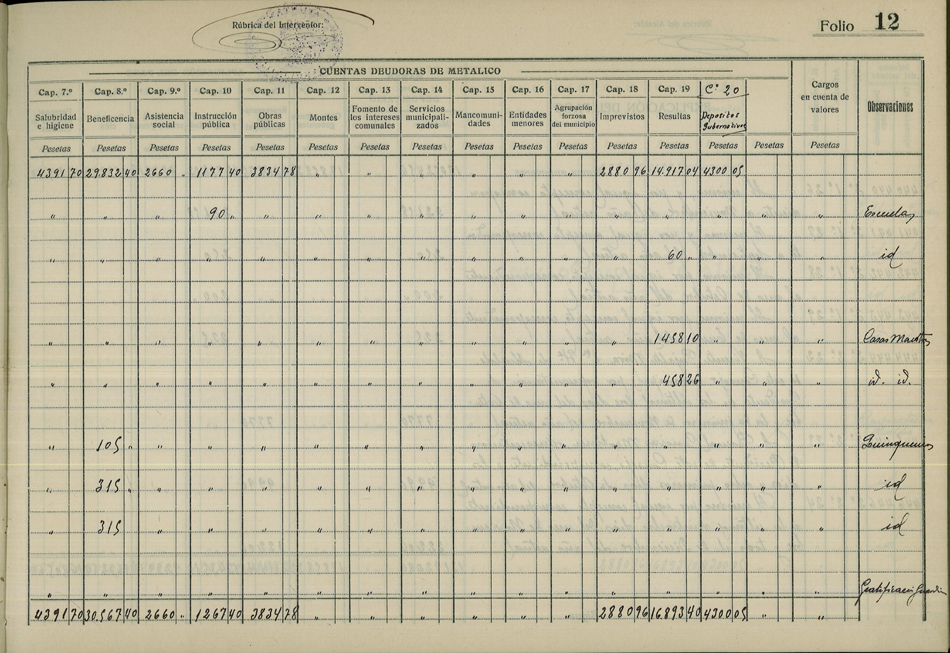 Rúbrica del Interventor:
Folio 12
CUENTAS DEUDORAS DE METALICO
Cap. 7.º Cap. 8.º Cap. 9.º Cap. 10 Cap. 11 Cap. 12 Cap. 13 Cap. 14 Cap. 15 Cap. 16 Cap. 17 Cap. 18 Cap. 19 Cº 20
Salubridad e higiene Beneficencia Asistencia social Instrucción pública Obras públicas Montes Fomento de los intereses comunales Servicios municipalizados Mancomunidades Entidades menores Agrupación forzosa del municipio Imprevistos Resultas Depositos Gubernativos Cargos en cuenta de valores Observaciones
Pesetas Pesetas Pesetas Pesetas Pesetas Pesetas Pesetas Pesetas Pesetas Pesetas Pesetas Pesetas Pesetas Pesetas Pesetas Pesetas
4391 70 29.832 40 2660 " 1177 40 3834 78 " " " " " " 2880 96 14.917 04 4300 05 " "
" " " 90 " " " " " " " " " " " " " Escuelas
" " " " " " " " " " " " 60 " " " " id
" " " " " " " " " " " " 1458 10 " " " Casas Maestros
" " " " " " " " " " " " 458 26 " " " id. id.
" 105 " " " " " " " " " " " " " " " Quinquenios
" 315 " " " " " " " " " " " " " " " id
" 315 " " " " " " " " " " " " " " " id
" " " " " " " " " " " " " " " " Gratificación
4391 70 30.567 40 2660 " 1267 40 3834 78 " " " " " " 2880 96 16.893 40 4300 05 " "